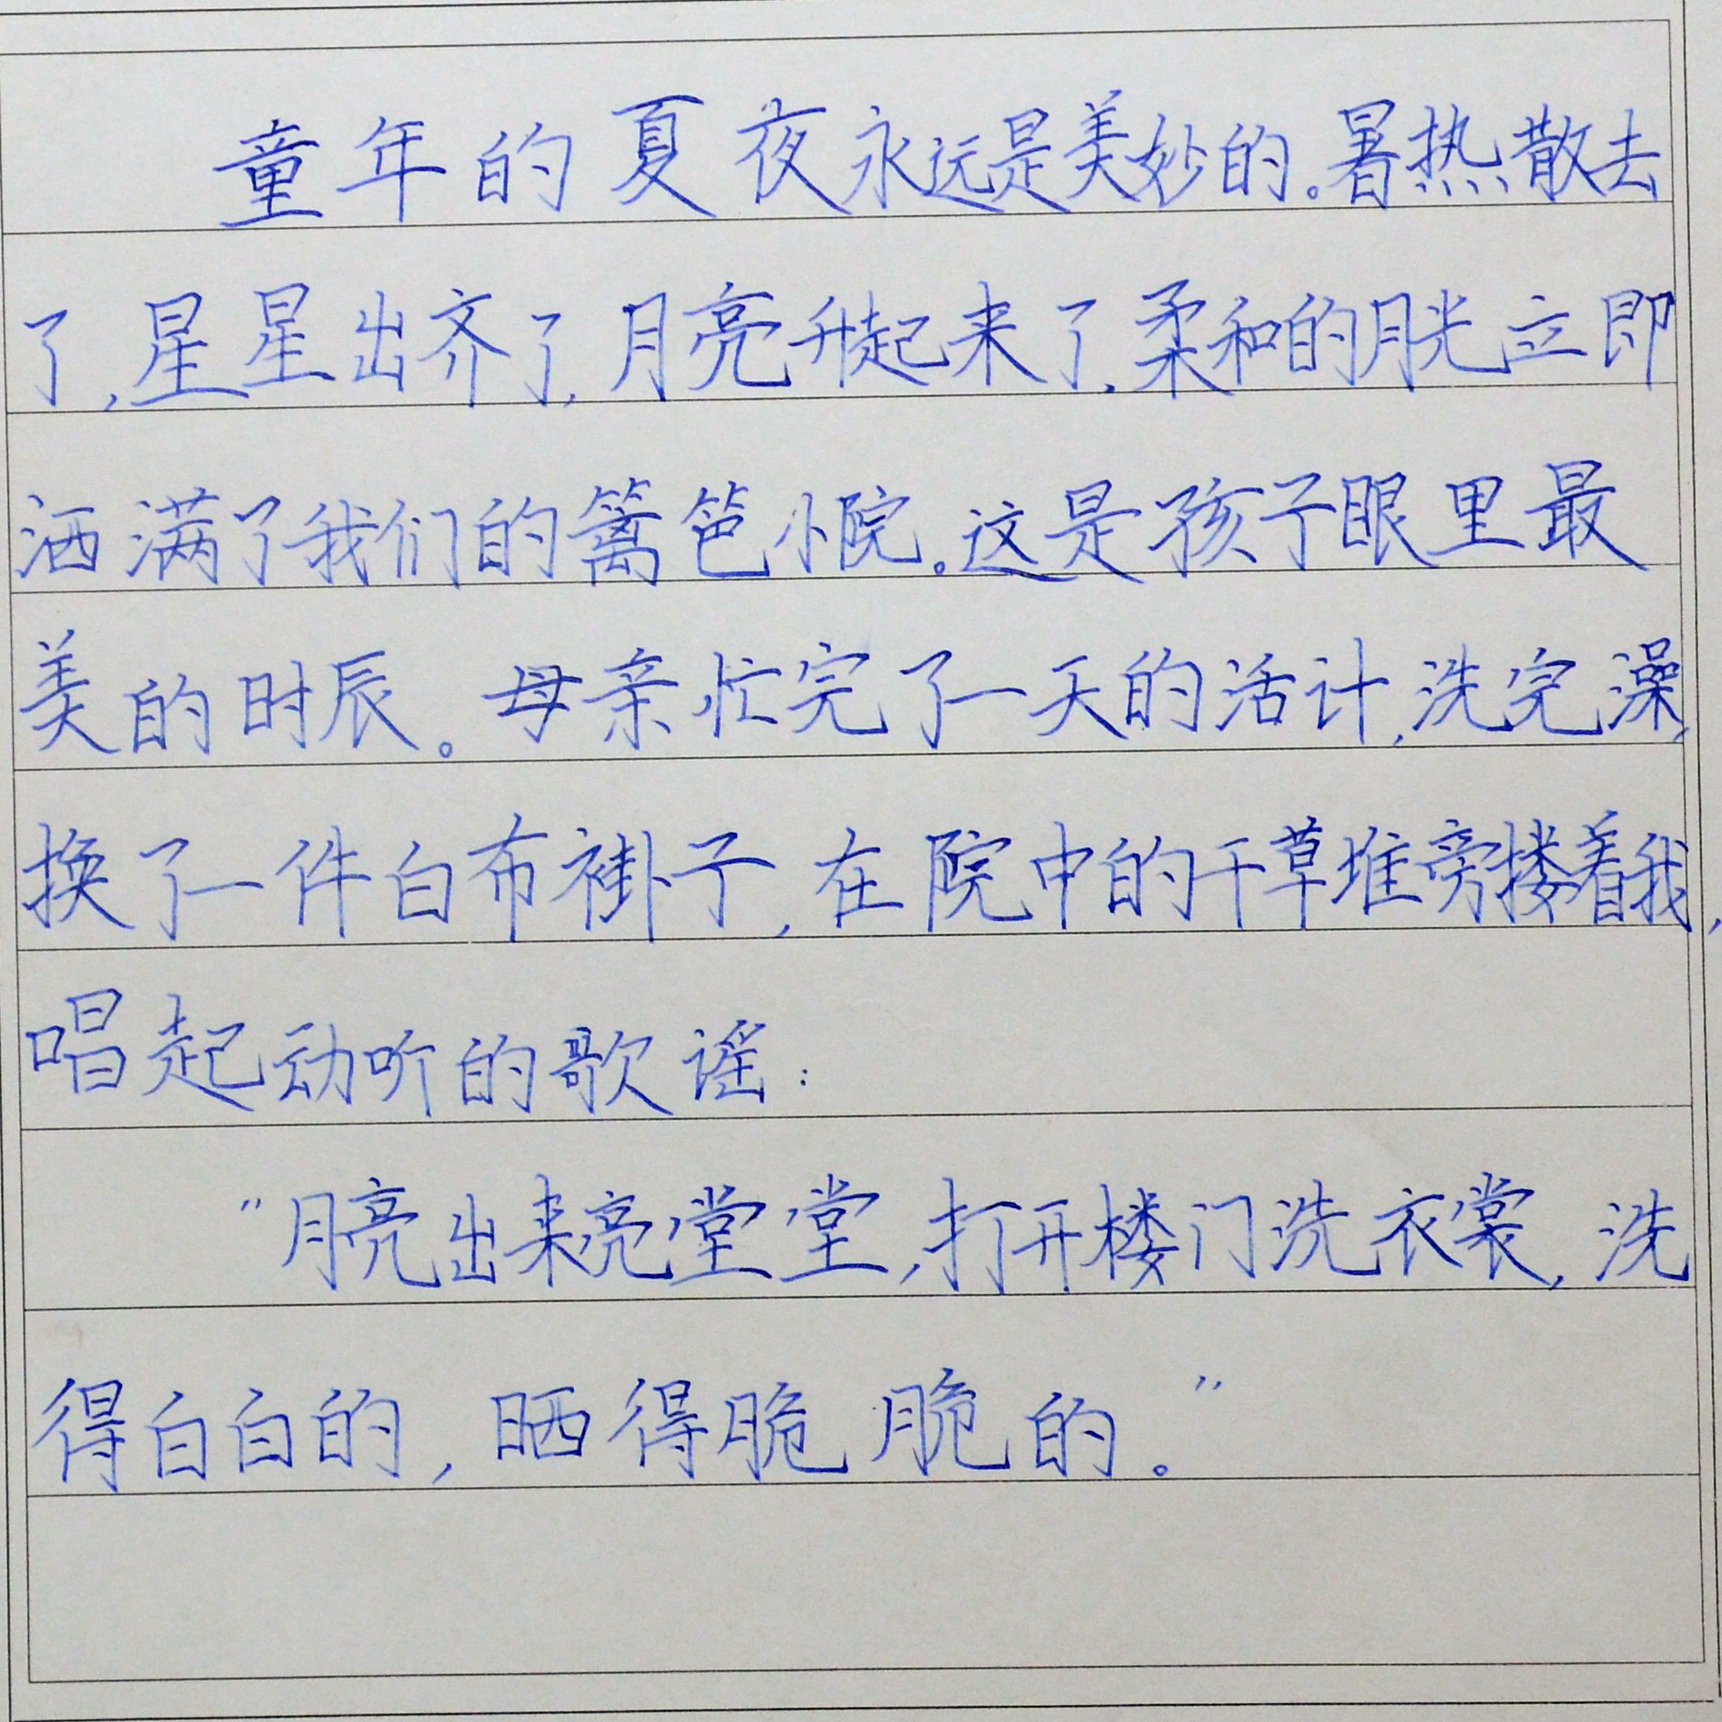 童年的夏夜永远是美妙的。暑热散去
了,星星出齐了,月亮升起来了,柔和的月光立即
洒满了我们的篱笆小院。这是孩子眼里最
美的时辰。母亲忙完了一天的活计,洗完澡,
换了一件白布褂子,在院中的干草堆旁搂着我,
唱起动听的歌谣:
"月亮出来亮堂堂,打开楼门洗衣裳,洗
得白白的,晒得脆脆的。"